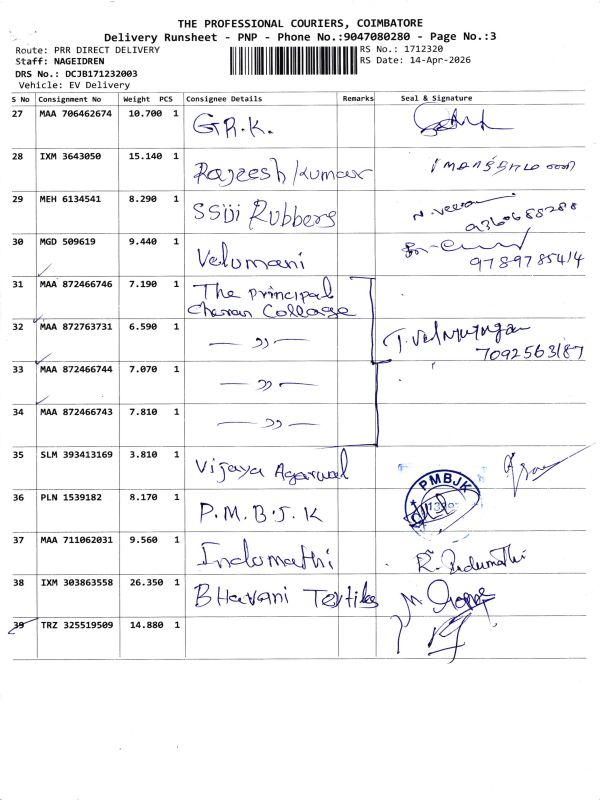 THE PROFESSIONAL COURIERS, COIMBATORE
Delivery Runsheet - PNP - Phone No.:9047080280 - Page No.:3
Route: PRR DIRECT DELIVERY
RS No.: 1712320
Staff: NAGEIDREN
RS Date: 14-Apr-2026
DRS No.: DCJB171232003
Vehicle: EV Delivery
S No Consignment No Weight PCS Consignee Details Remarks Seal & Signature
27 MAA 706462674 10.700 1 G.R.K.
28 IXM 3643050 15.140 1 Rajeesh Kumar
29 MEH 6134541 8.290 1 SSIJI Rubbers N. Veera 9360688288
30 MGD 509619 9.440 1 Velumani 9789785414
31 MAA 872466746 7.190 1 The principal
Cheran Collage
32 MAA 872763731 6.590 1 — 〃 — T. Velmurugan
7092563187
33 MAA 872466744 7.070 1 — 〃 —
34 MAA 872466743 7.810 1 — 〃 —
35 SLM 393413169 3.810 1 Vijaya Agarwal
36 PLN 1539182 8.170 1 P.M.B.J.K PMBJK
37 MAA 711062031 9.560 1 Indumathi R. Indumathi
38 IXM 303863558 26.350 1 Bhavani Textiles
39 TRZ 325519509 14.880 1